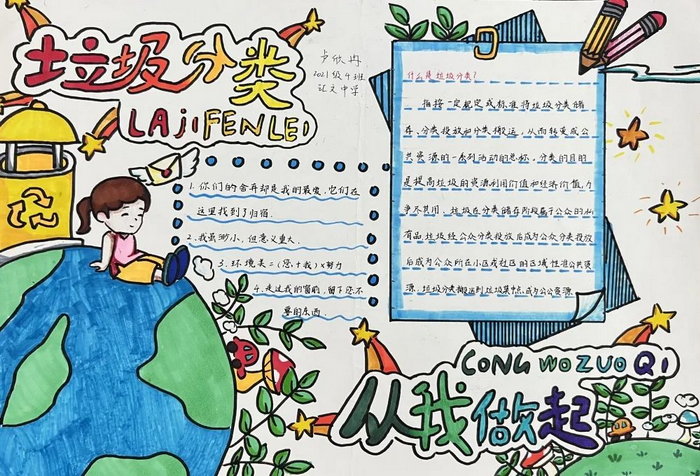 垃圾分类
LAJIFENLEI
卢欣冉
2021级4班
汇文中学
1. 你们的舍弃却是我的最爱,它们在
这里找到了归宿.
2. 我虽渺小,但意义重大.
3. 环境美=(您+我)×努力
4. 走过我的窗前,留下您不
要的东西.
什么是垃圾分类?
指按一定规定或标准将垃圾分类储
存、分类投放和分类搬运,从而转变成公
共资源的一系列活动的总称.分类的目的
是提高垃圾的资源利用价值和经济价值,力
争物尽其用.垃圾在分类储存阶段属于公众的私
有品,垃圾经公众分类投放后成为公众分类投放
后成为公众所在小区或社区的区域性准公共资
源,垃圾分类搬运到垃圾集中点,成为公共资源.
CONG WO ZUO QI
从我做起